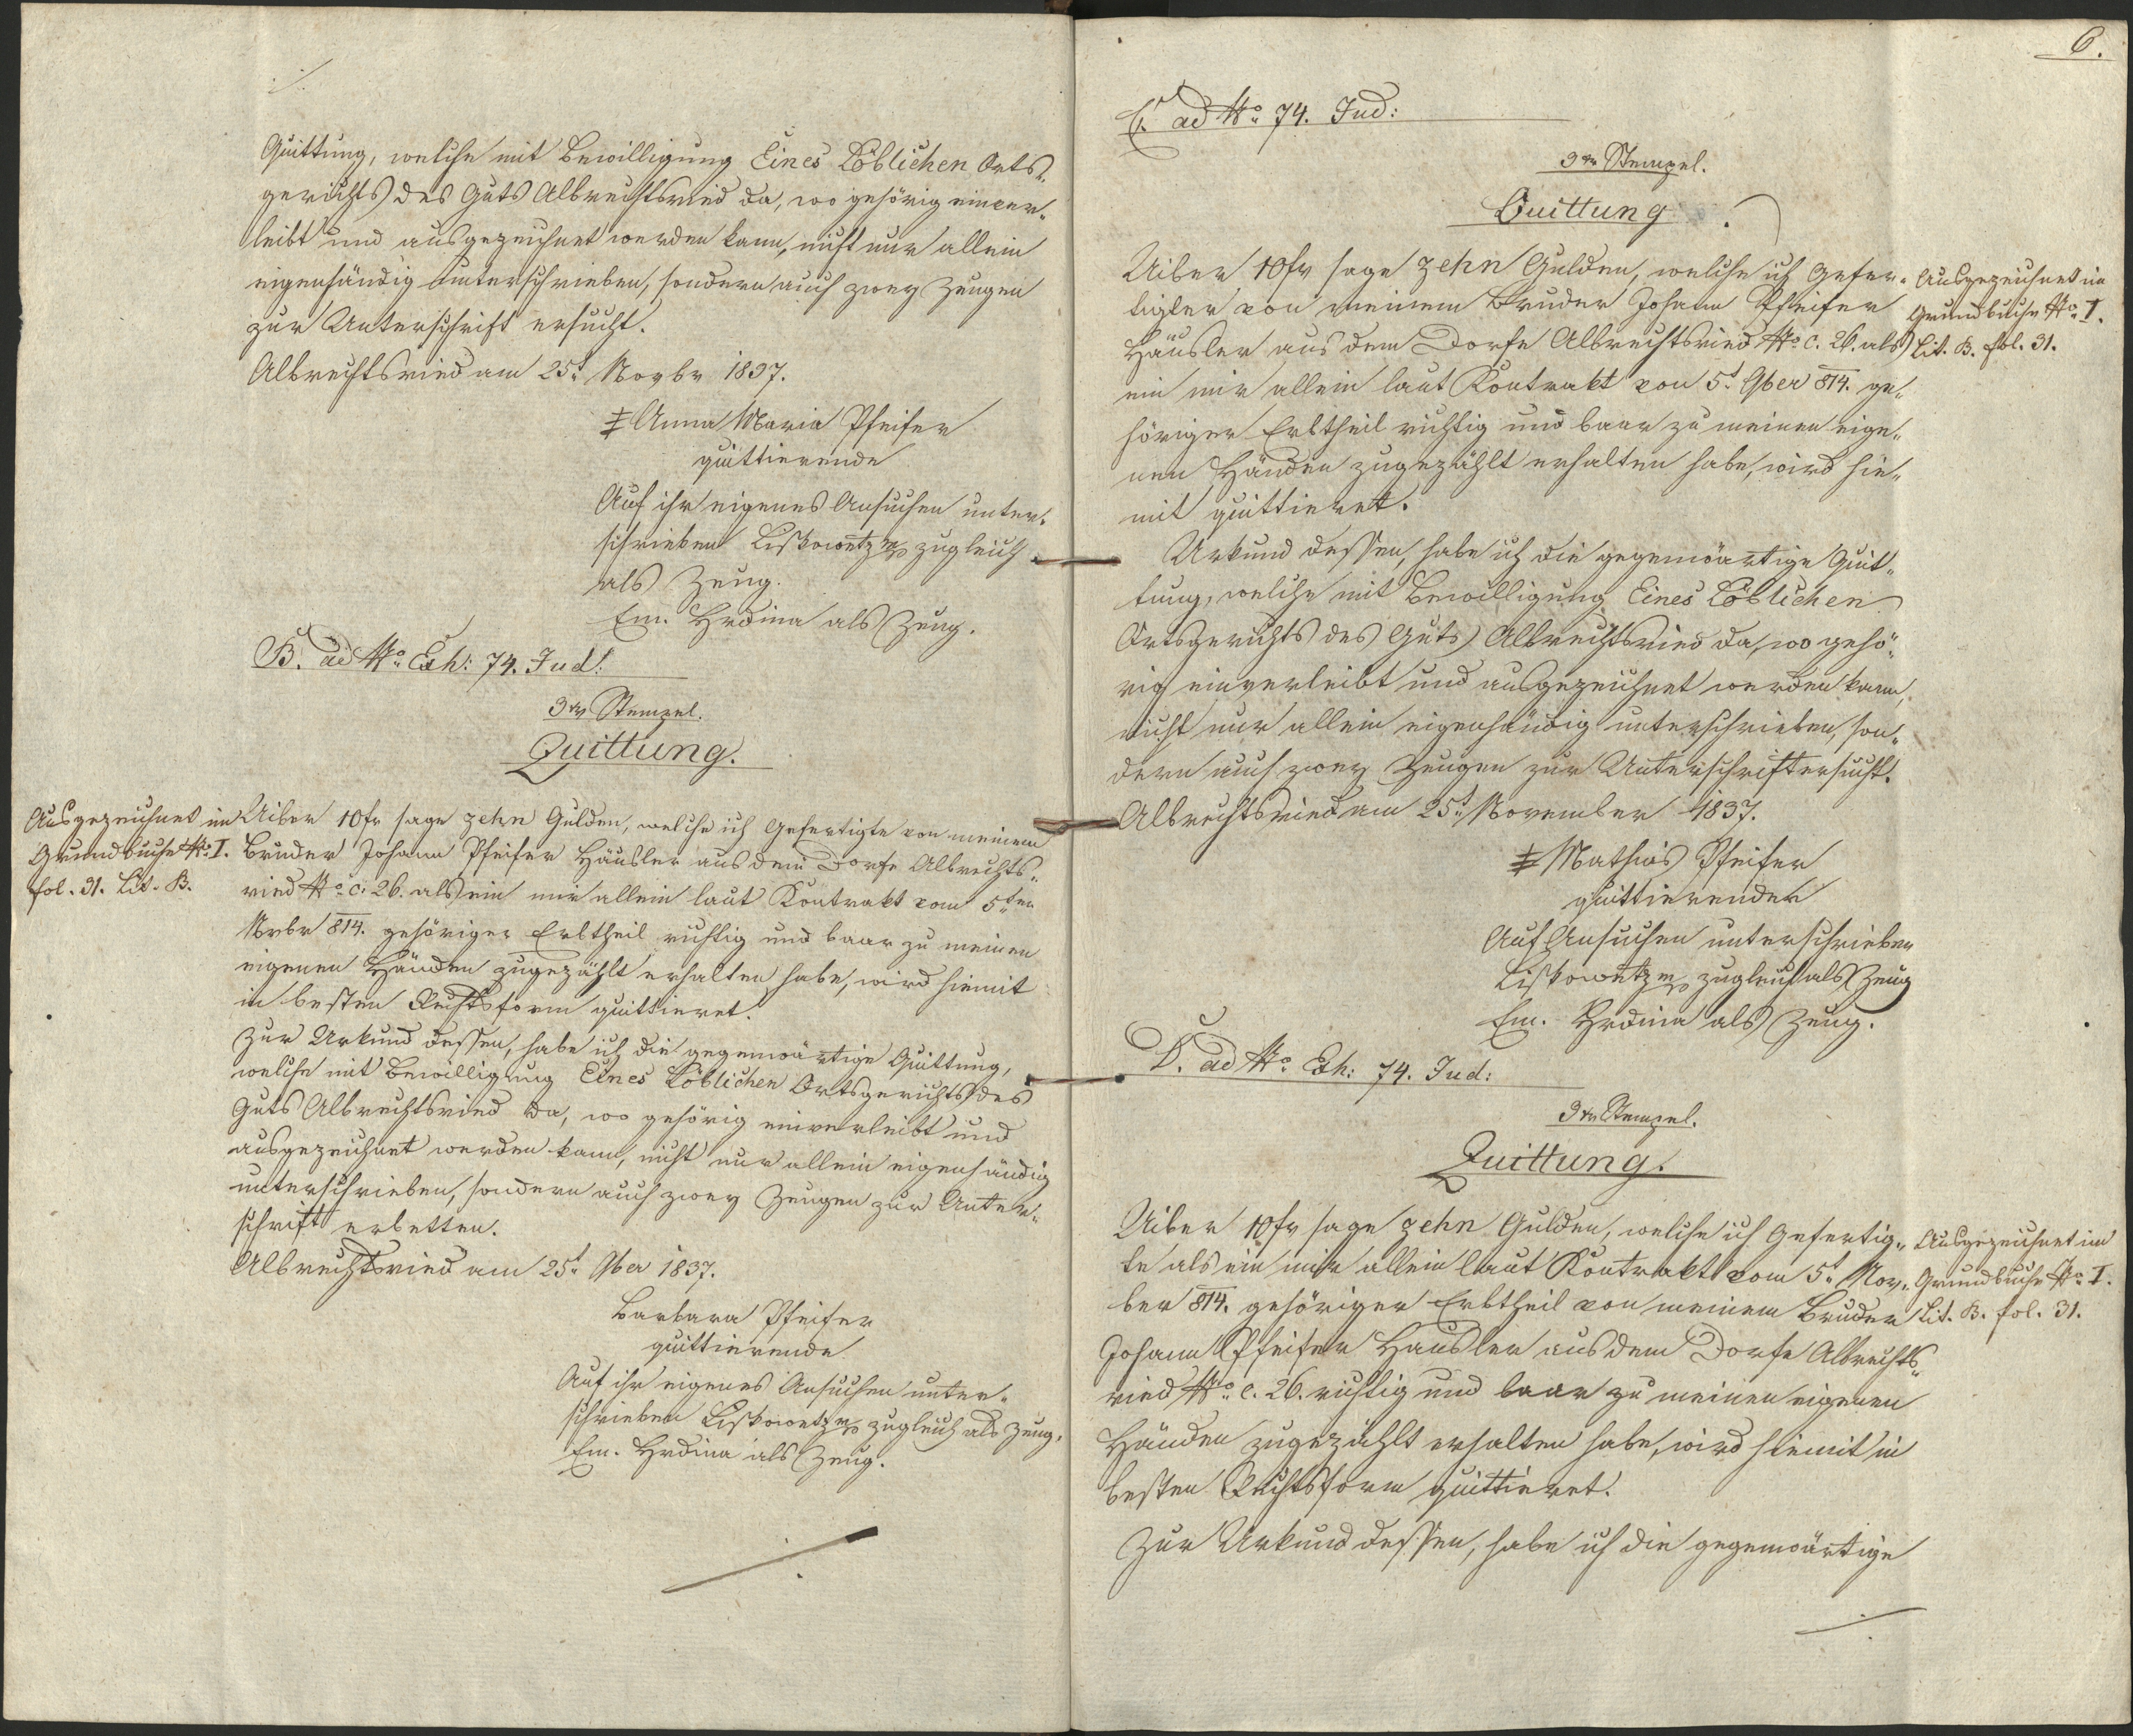 Quittung, welche mit Bewilligung Eines Löblichen Orts-
gerichts des Guts Albrechtsried da, wo gehörig einver„
leibt und ausgezeichnet werden kann, nicht nur allein
eigenhändig unterschrieben, sondern auch zwey Zeugen
zur Unterschrift ersucht.
Albrechtsried am 25t Novbr 1837.
‡ Anna Maria Pfeifer
quittierende
Auf ihr eigenes Ansuchen unter-
schrieben Liskowetz zugleich
als Zeug.
Em. Hrdina als Zeug.
B. ad No Exh: 74. Jud:
3 xr Stempel.
Quittung.
Ausgezeichnet im
Grundbuche No I.
fol. 31. Lit. B.
Uiber 10 fr sage zehn Gulden, welche ich Gefertigte von meinem
Bruder Johann Pfeifer Häusler aus dem Dorfe Albrechts„
ried No c: 26. als ein mir allein laut Kontrakt vom 5ten
Nvbr 814. gehöriger Erbtheil richtig und baar zu meinen
eigenen Händen zugezählt erhalten habe, wird hiemit
in besten Rechtsform quittieret.
Zur Urkund dessen, habe ich die gegenwärtige Quittung,
welche mit Bewilligung Eines Löblichen Ortsgerichts des
Guts Albrechtsried da, wo gehörig einverleibt und
ausgezeichnet werden kann, nicht nur allein eigenhändig
unterschrieben, sondern auch zwey Zeugen zur Unter„
schrift erbetten.
Albrechtsried am 25t 9ber 1837.
Barbara Pfeifer
quittierende
Auf ihr eigenes Ansuchen unter-
schrieben Liskowetz zugleich als Zeug.
Em. Hrdina als Zeug.
6.
C. ad No 74. Jud:
3 xr Stempel.
Quittung.
Uiber 10 fr sage zehn Gulden, welche ich Gefer-
tigter von meinem Bruder Johann Pfeifer
Häusler aus dem Dorfe Albrechtsried No c. 26. als
ein mir allein laut Kontrakt von 5t 9ber 814. ge„
höriger Erbtheil richtig und baar zu meinen eige„
nen Händen zugezählt erhalten habe, wird hie„
mit quittieret.
Ausgezeichnet im
Grundbuche No I.
Lit. B. fol. 31.
Urkund dessen, habe ich die gegenwärtige Quit„
tung, welche mit Bewilligung Eines Löblichen
Ortsgerichts des Guts Albrechtsried da, wo gehö„
rig einverleibt und ausgezeichnet werden kann,
nicht nur allein eigenhändig unterschrieben, son„
dern auch zwey Zeugen zur Unterschrift ersucht.
Albrechtsried am 25t November 1837.
‡ Mathias Pfeifer
quittierender
Auf Ansuchen unterschrieben
Liskowetz zugleich als Zeug
Em. Hrdina als Zeug.
D. ad No Exh: 74. Jud:
3 xr Stempel.
Quittung.
Uiber 10 fr sage zehn Gulden, welche ich Gefertig„
te als ein mir allein laut Kontrakt vom 5t Nov„
ber 814. gehöriger Erbtheil von meinem Bruder
Johann Pfeifer Häusler aus dem Dorfe Albrechts„
ried No c. 26. richtig und baar zu meinen eigenen
Händen zugezählt erhalten habe, wird hiemit in
besten Rechtsform quittieret.
Ausgezeichnet im
Grundbuche No I.
Lit. B. fol. 31.
Zur Urkund dessen, habe ich die gegenwärtige